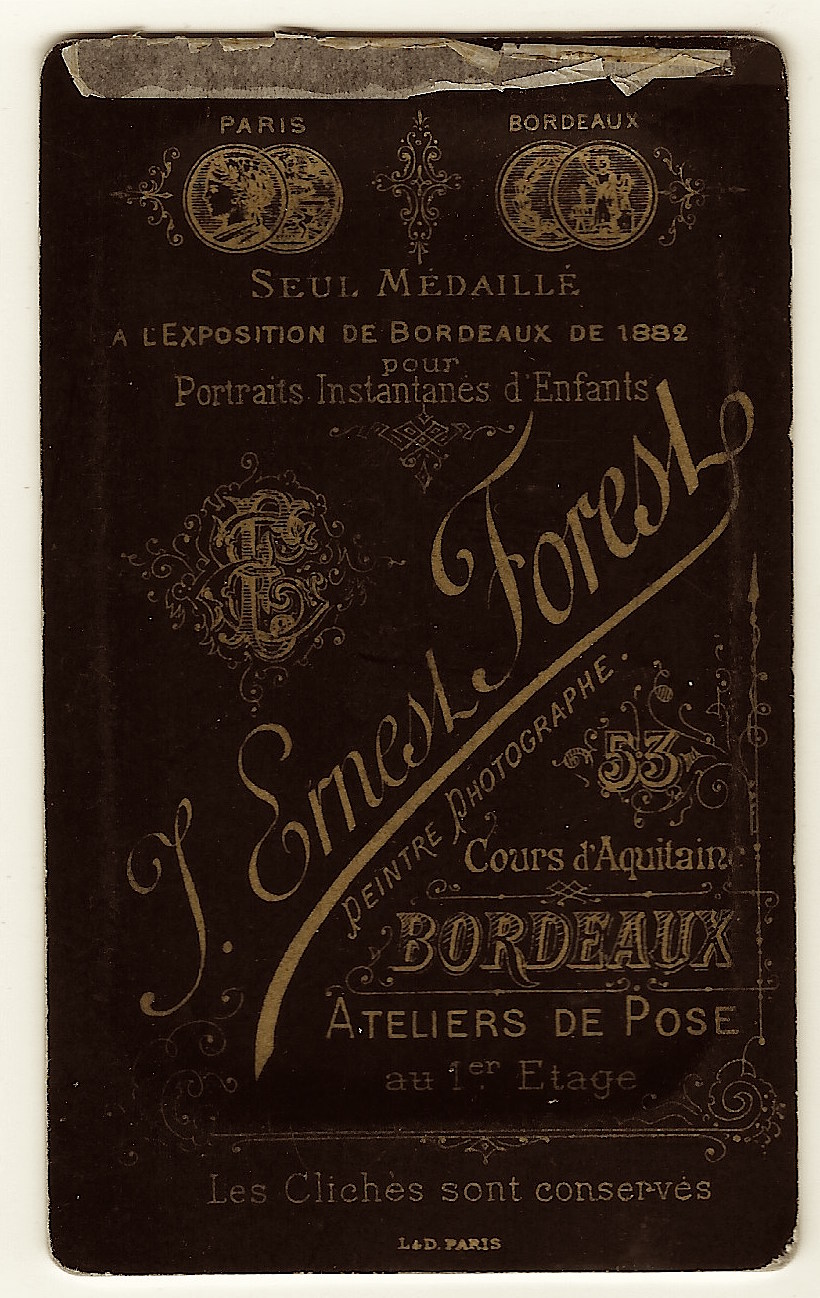 PARIS
BORDEAUX
SEUL MÉDAILLÉ
A L'EXPOSITION DE BORDEAUX DE 1882
pour
Portraits Instantanés d'Enfants
J. Ernest Forest
PEINTRE PHOTOGRAPHE.
53
Cours d'Aquitaine
BORDEAUX
ATELIERS DE POSE
au 1er Etage
Les Clichés sont conservés
L&D. PARIS